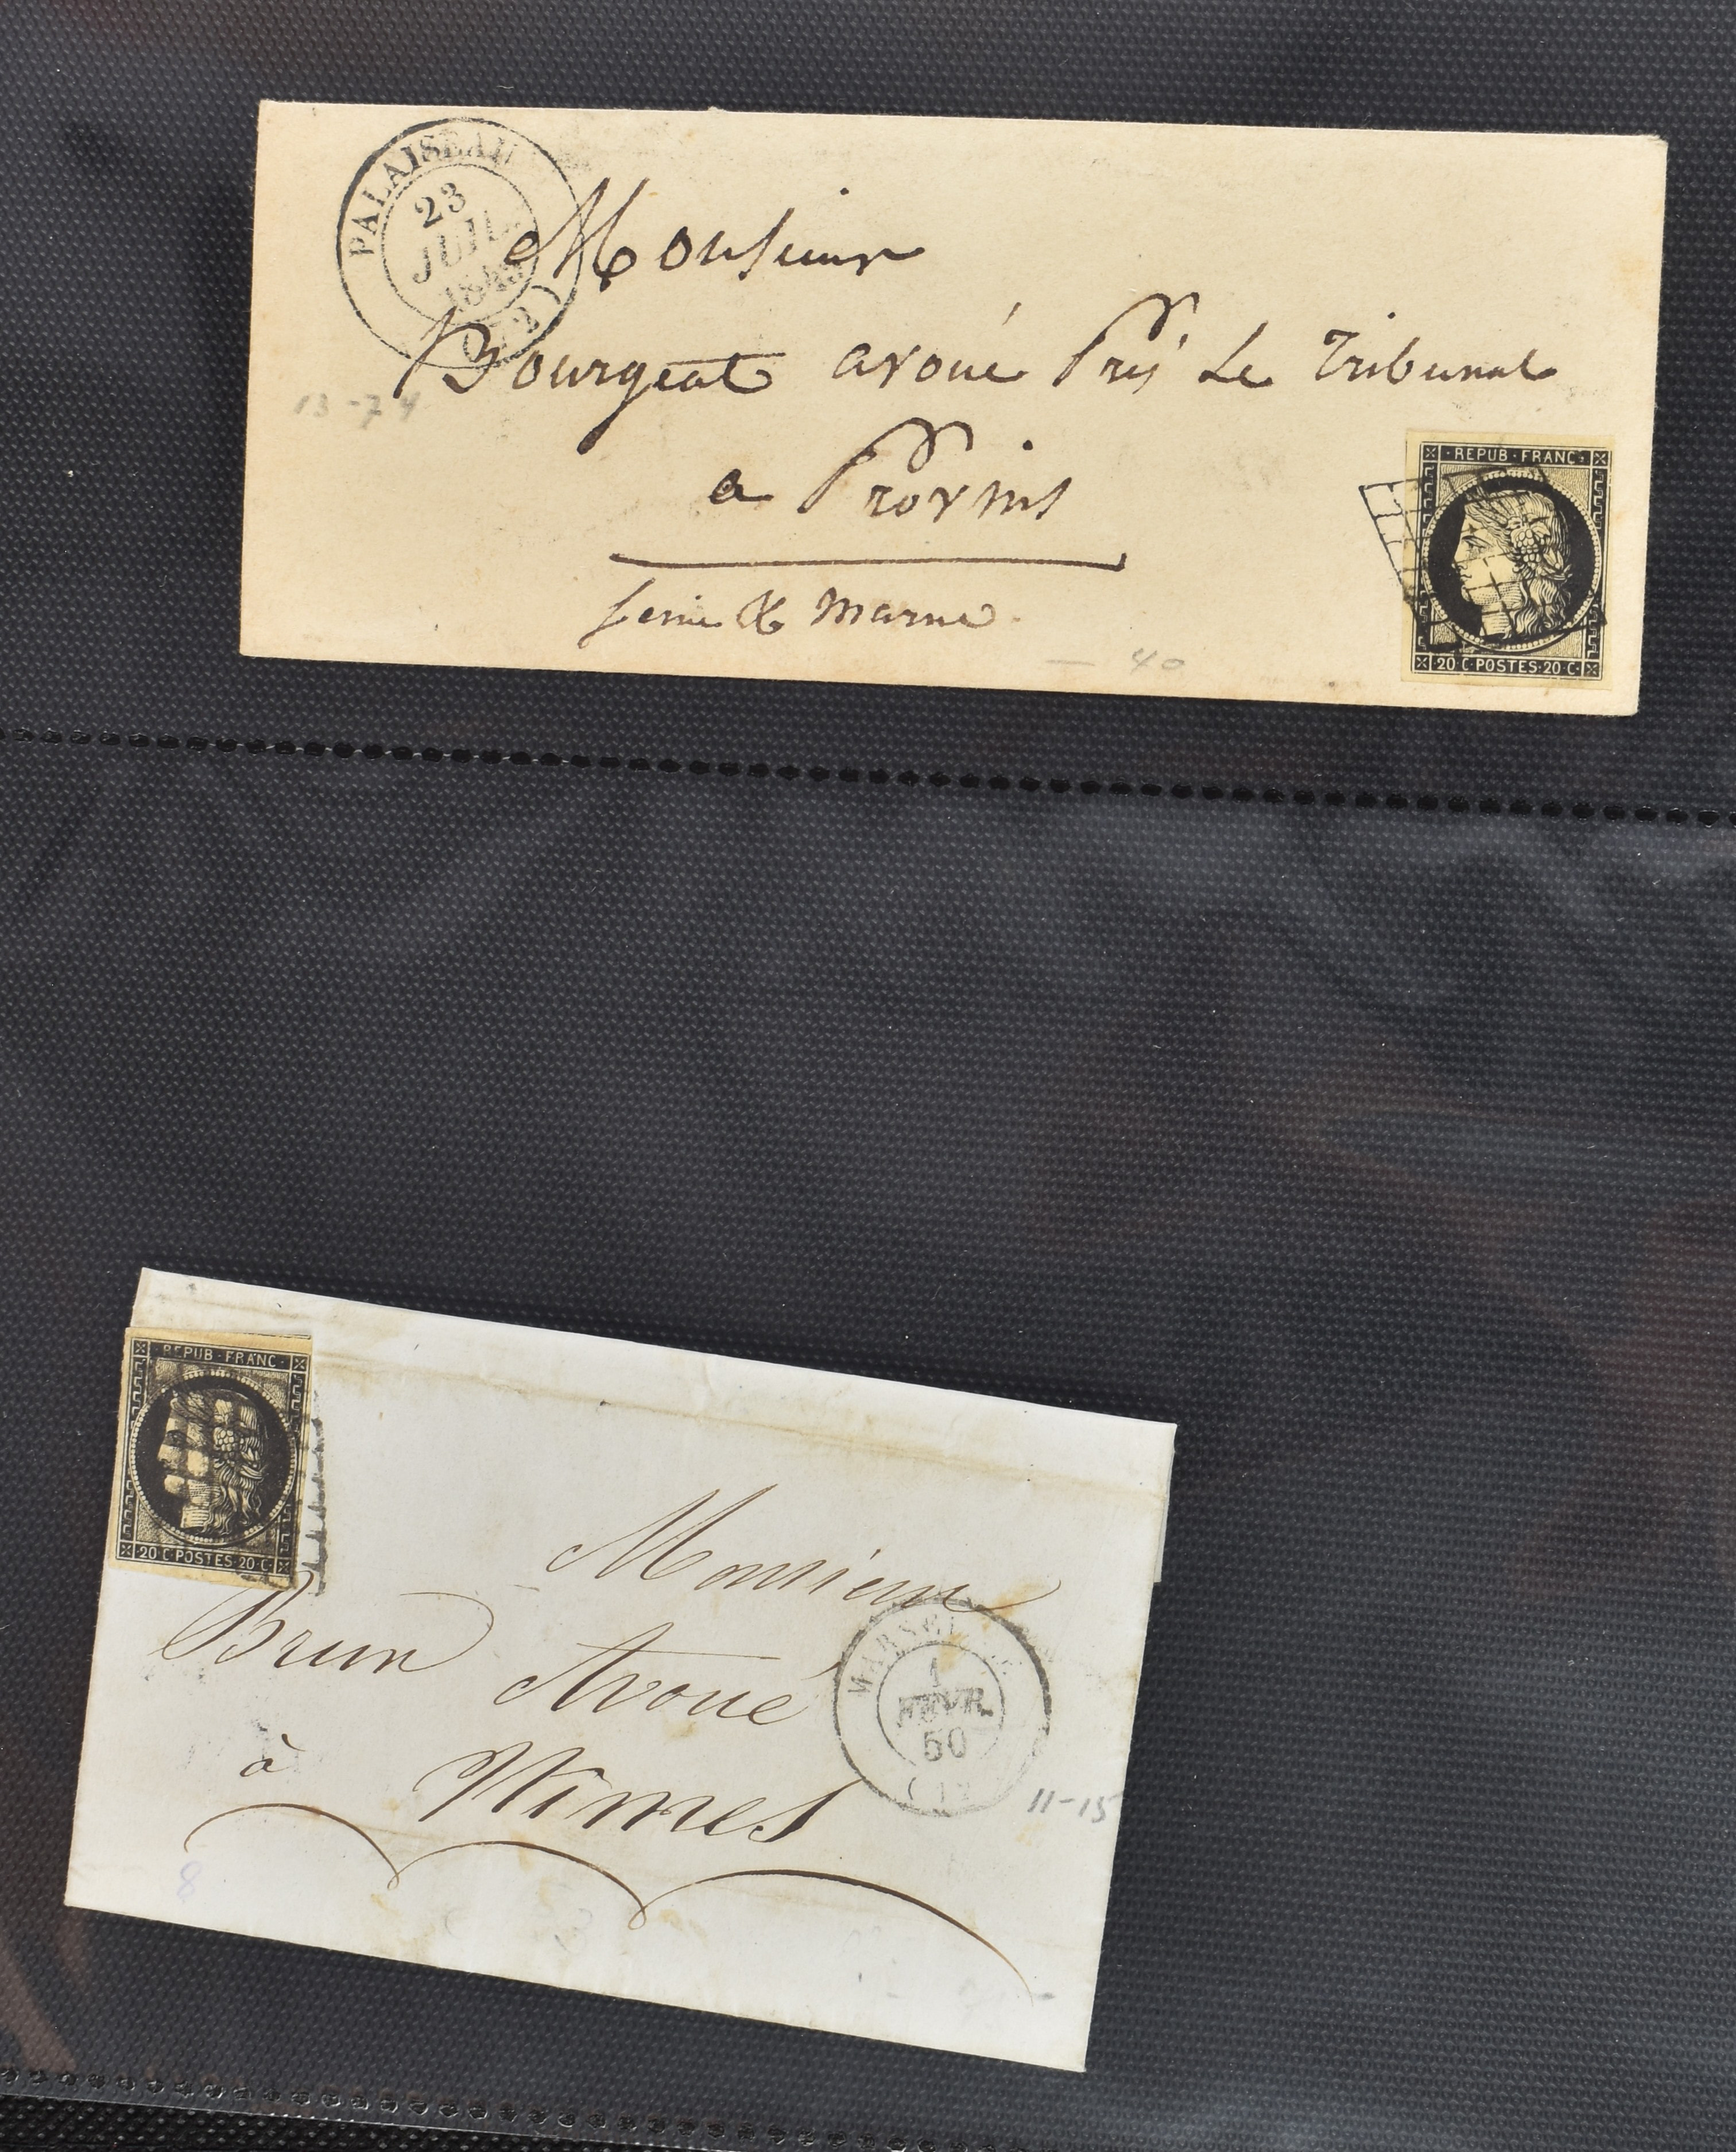 PALAISEAU
23
JUIL.
1849
(72)
Monsieur
Bourgeat avoué Prés Le Tribunal
13-74
a Provins
Seine & Marne
- 40
REPUB·FRANC·
20·C·POSTES·20·C·
REPUB·FRANC·
20·C·POSTES·20·C·
Monsieur
Brun Avoué
à Nîmes
MARSEILLE
1
FEVR.
50
(12)
11-15
8